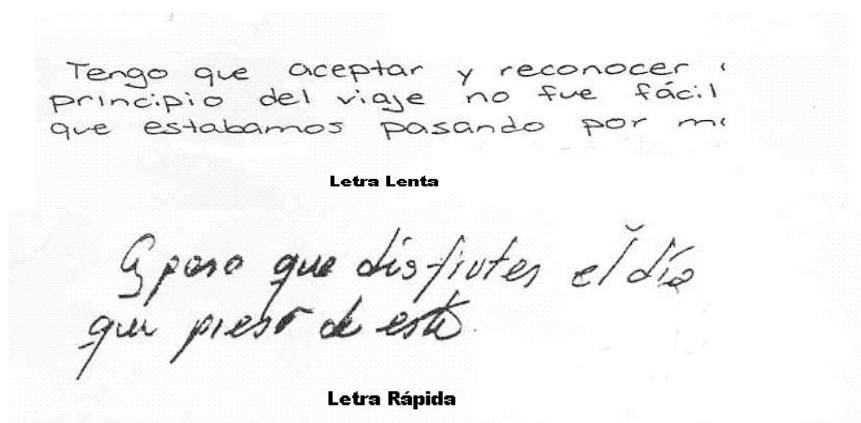 Tengo que aceptar y reconocer
principio del viaje no fue fácil
que estabamos pasando por
Letra Lenta
que disfrutes el día
que de este
Letra Rápida